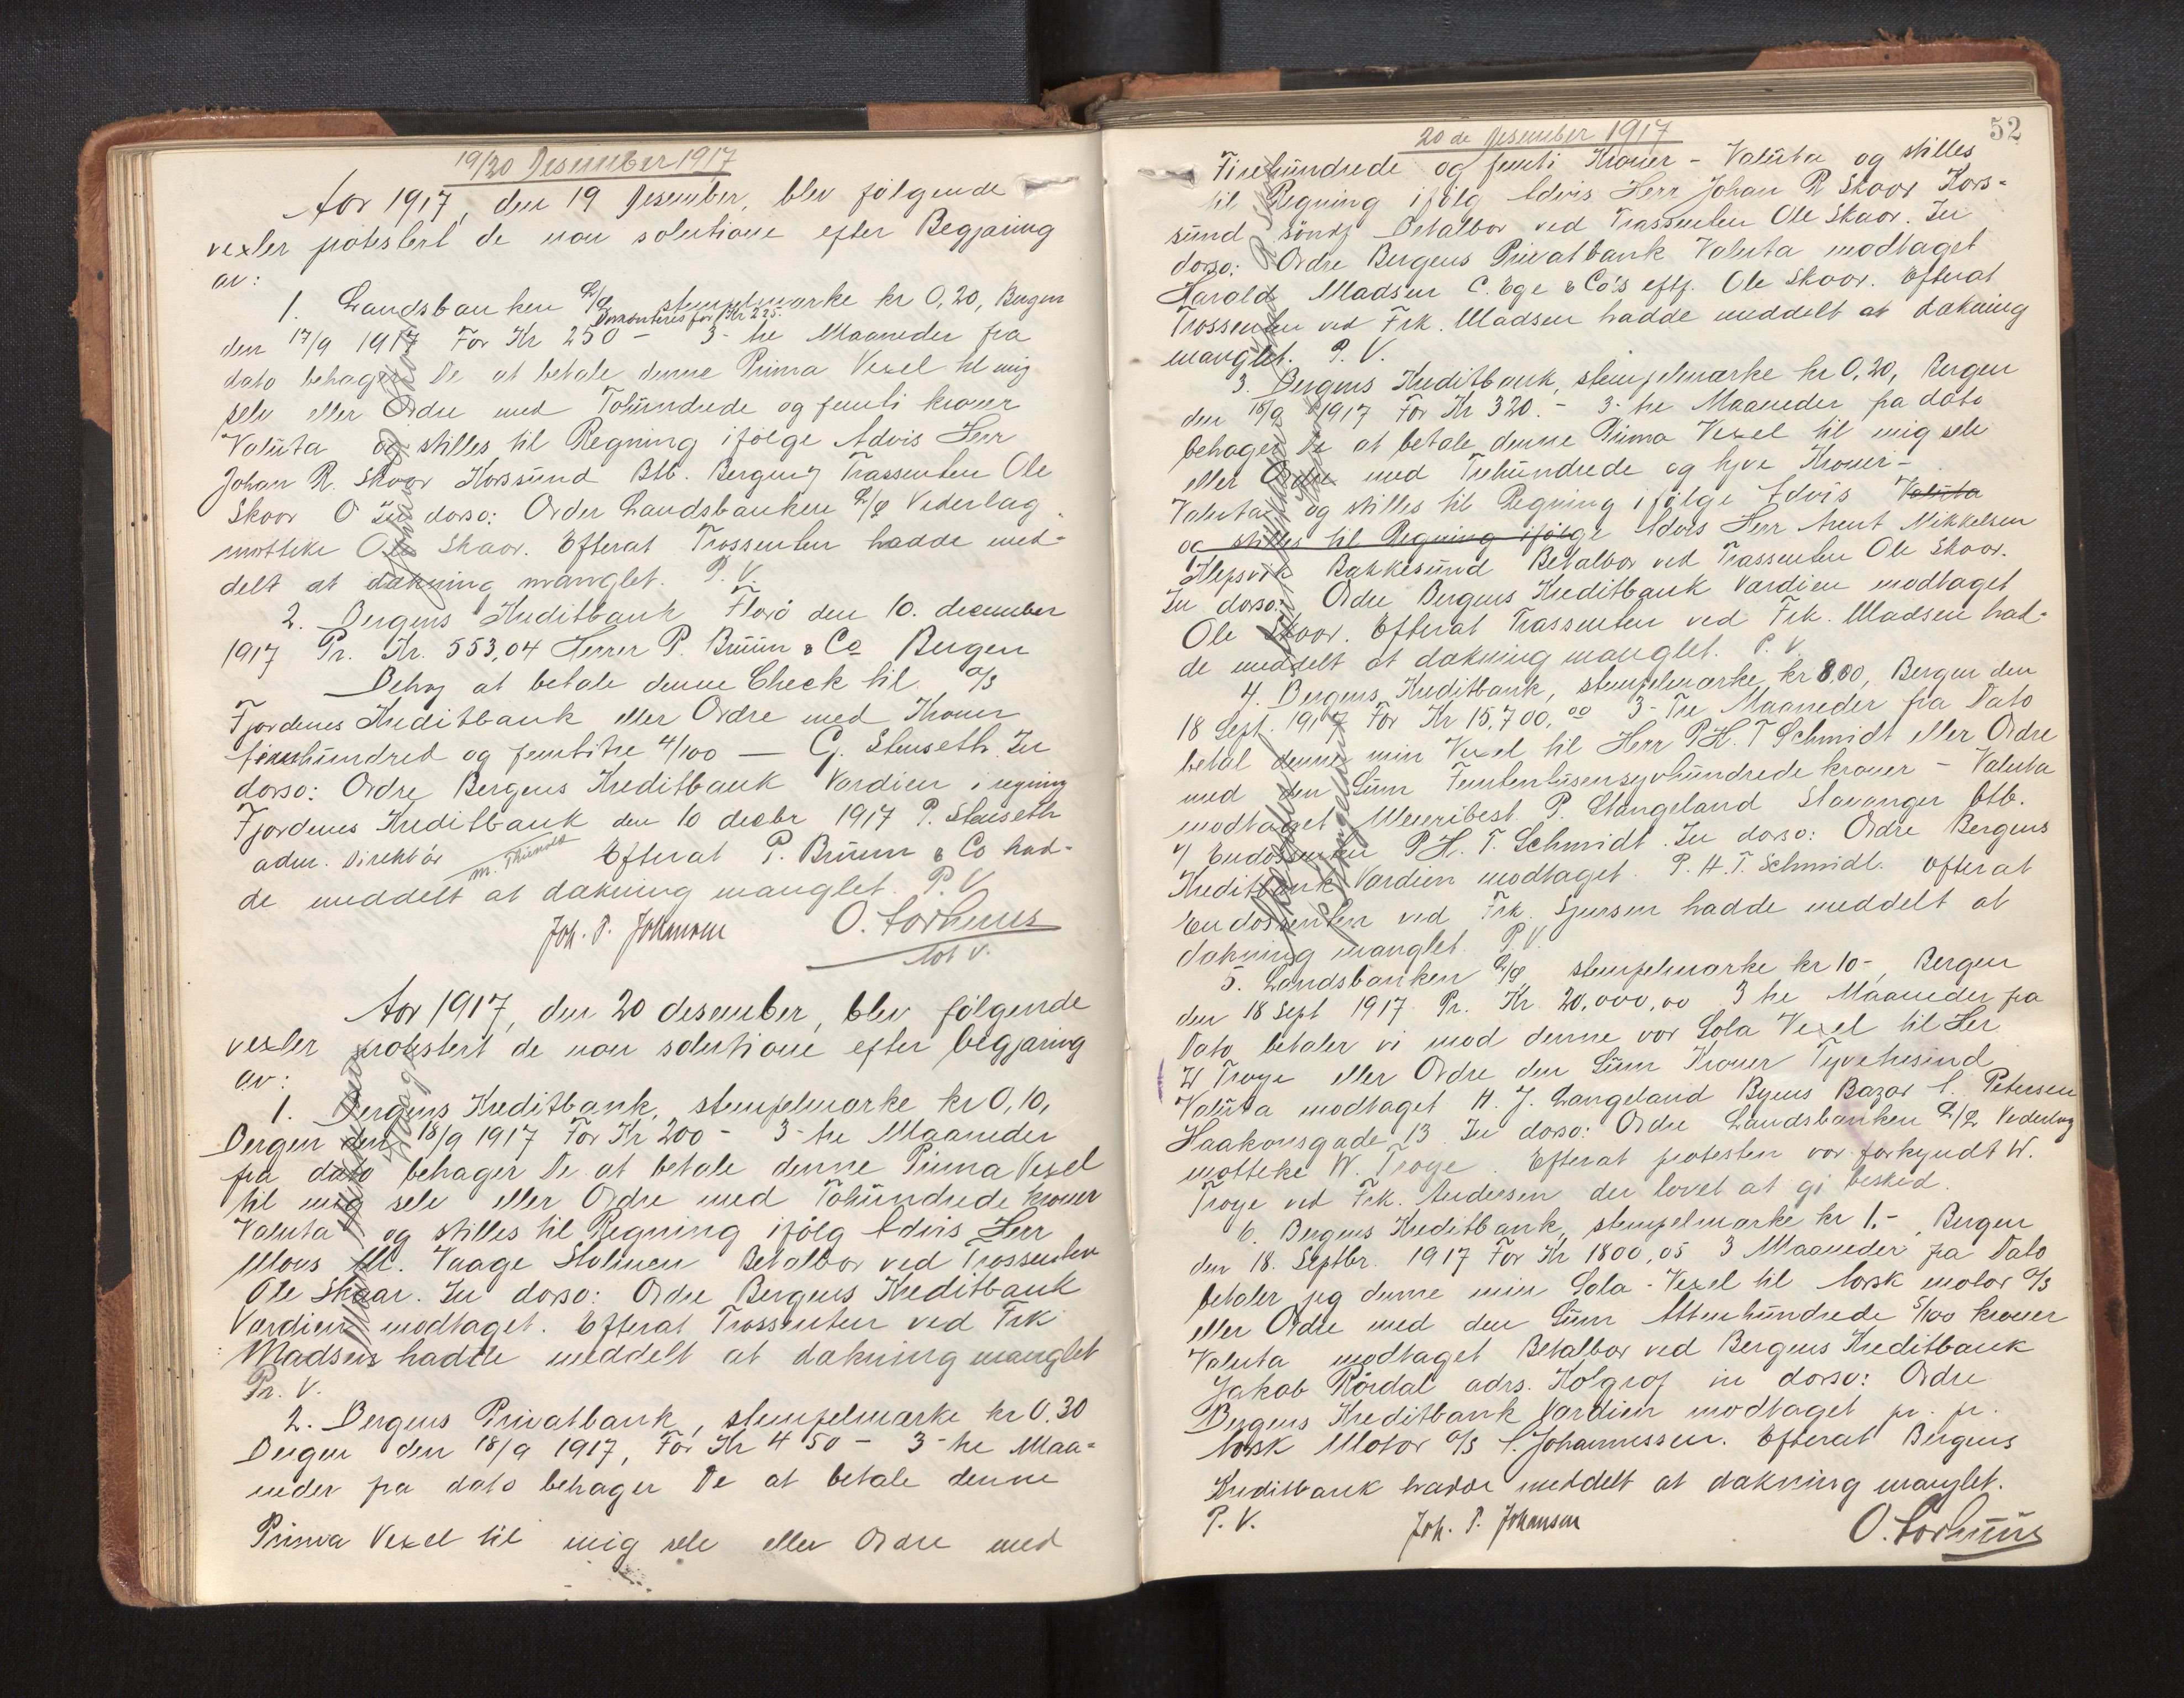 19/20 Desember 1917
Aar 1917, den 19 Desember, blev følgende
vexler protestert de non solutione efter Begjæring
av:
1. Landsbanken A/S stempelmærke kr 0,20, Bergen
Demonteres for Kr 225.
den 17/9 1917 For Kr 250 - 3- tre Maaneder fra
dato behager De at betale denne Prima Vexel til mig
selv eller Ordre med Tohundrede og femti kroner
Valuta og stilles til Regning ifølge Advis Herr
Johan R. Skaar Korssund Btb. Bergen Trassenten Ole
Skaar O In dorso: Order Landsbanken A/S Vederlag
mottike Ole Skaar. Efterat Trassenten hadde med-
delt at dækning manglet. P. V.
2. Bergens Kreditbank Florø den 10. december
1917 Pr. Kr. 553,04 Herrer P. Bruun & Co Bergen
Behag at betale denne Check til A/S
Fjordenes Kreditbank eller Ordre med Kroner
femhundred og femtitre 4/100 — G. Stenseth In
dorso: Ordre Bergens Kreditbank Værdien i regning
Fjordenes Kreditbank den 10 decbr 1917 P. Stenseth
adm. Direktør Efterat P. Bruun & Co had-
de meddelt at dækning manglet. P. V.
Joh. P. Johansen O. Sorhuus
Aar 1917, den 20 desember, blev følgende
vexler protestert de non solutione efter begjæring
av:
1. Bergens Kreditbank, stempelmærke kr 0,10,
Bergen den 18/9 1917 For Kr 200 - 3- tre Maaneder
fra dato behager De at betale denne Prima Vexel
til mig selv eller Ordre med Tohundrede kroner
Valuta og stilles til Regning ifølg Advis Herr
Mons M. Vaage Stolmen Betalbar ved Trassenten
Ole Skaar. In dorso: Ordre Bergens Kreditbank
Værdien modtaget. Efterat Trassenten ved Frk
Madsen hadde meddelt at dækning manglet
Pr. V.
2. Bergens Privatbank, stempelmærke kr 0.30
Bergen den 18/9 1917, For Kr 450 - 3- tre Maa-
neder fra dato behager De at betale denne
Prima Vexel til mig selv eller Ordre med
20 de Desember 1917
52
Firehundrede og femti Kroner - Valuta og stilles
til Regning ifølg Advis Herr Johan R Skaar Kors-
sund Betalbar ved Trassenten Ole Skaar. In
dorso: Ordre Bergens Privatbank Valuta modtaget
Harald Madsen C. Ege & Co's eftf. Ole Skaar. Efterat
Trassenten ved Frk. Madsen hadde meddelt at dækning
manglet. P. V.
3. Bergens Kreditbank, stempelmærke kr 0,20, Bergen
den 18/9 1917 For Kr 320.- 3- tre Maaneder fra dato
behager De at betale denne Prima Vexel til mig selv
eller Ordre med Trehundrede og tyve Kroner-
Valuta og stilles til Regning ifølge Advis Valuta
og stilles til Regning ifølge Advis Herr Arent Mikkelsen
Klepsvik Bakkesund Betalbar ved Trassenten Ole Skaar.
In dorso: Ordre Bergens Kreditbank Værdien modtaget
Ole Skaar. Efterat Trassenten ved Frk. Madsen had-
de meddelt at dækning manglet. P. V.
4. Bergens Kreditbank, stempelmærke kr 8,00, Bergen den
18 Sept. 1917 For Kr 15,700,00 3- Tre Maaneder fra Dato
betal denne min Vexel til Herr P.H.T Schmidt eller Ordre
med den Sum Femtentusensyvhundrede kroner - Valuta
modtaget P. Stangeland Stavanger Btb.
v/ Endossenten P.H.T. Schmidt. In dorso: Ordre Bergens
Kreditbank Værdien modtaget. P. H. T. Schmidt. Efterat
Endossenten ved Frk. hadde meddelt at
dækning manglet. P. V.
5. Landsbanken A/S, stempelmærke kr 10-, Bergen
den 18 Sept 1917 Pr. Kr. 20,000,00 3 tre Maaneder fra
Dato betaler vi mod denne vor Sola Vexel til Her
W Troye eller Ordre den Sum Kroner Tyvetusind
Valuta modtaget H. J. Langeland Byens Bazar C. Petersen
Haakonsgade 13. In dorso: Ordre Landsbanken A/S Vederlag
motteke W. Troye. Efterat protesten var forkyndt W.
Troye ved Frk. Andersen der lovet at gi besked.
6. Bergens Kreditbank, stempelmærke kr 1.-, Bergen
den 18. Septbr. 1917 For Kr 1800,05 3 Maaneder fra Dato
betaler jeg denne min Sola-Vexel til Norsk motor A/S
eller Ordre med den Sum Attenhundrede 5/100 kroner
Valuta modtaget Betalbar ved Bergens Kreditbank
Jakob Rørdal adrs. Kolgrof in dorso: Ordre
Bergens Kreditbank Værdien modtaget pr. pr.
Norsk Motor A/S C. Johannessen. Efterat Bergens
Kreditbank hadde meddelt at dækning manglet.
P. V. Joh. P. Johansen O. Sorhuus